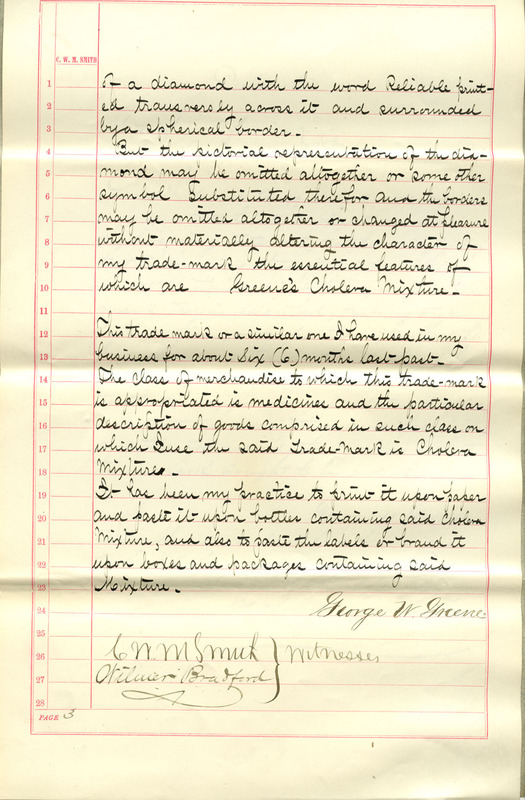 C. W. M. SMITH
1 of a diamond with the word Reliable print-
2 ed transversly across it and surrounded
3 by a spherical border.-
4 But the pictorial representation of the dia-
5 mond may be omitted altogether or some other
6 symbol Substituted therefor and the borders
7 may be omitted altogether or changed at pleasure
8 without materially altering the character of
9 my trade-mark the essential features of
10 which are Greene's Cholera Mixture.-
11
12 This trade mark or a similar one I have used in my
13 business for about Six (6) months last past.-
14 The class of merchandise to which this trade-mark
15 is appropriated is medicines and the particular
16 description of goods comprised in such class on
17 which I use the said Trade-Mark is Cholera
18 Mixture.
19 It has been my practice to print it upon paper
20 and paste it upon bottles containing said Cholera
21 Mixture, and also to paste the labels or brand it
22 upon boxes and packages containing said
23 Mixture.-
24 George W. Greene.
25
26 C W M Smith } Witnesses
27 Wilmer Bradford
28
PAGE 3